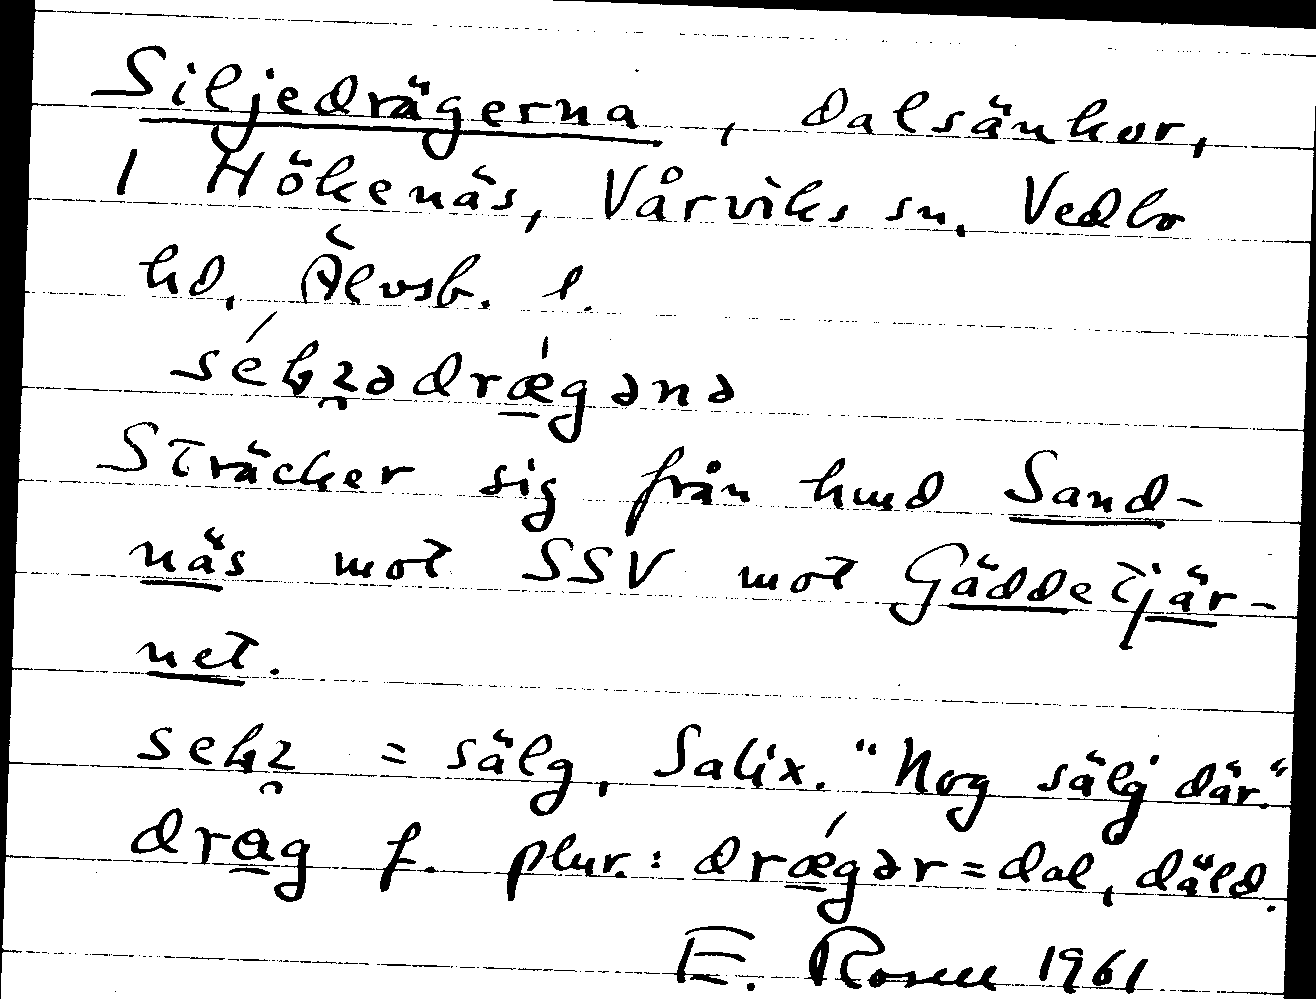 Siljedrägerna, dalsänkor,
i Hökenäs, Vårviks sn, Vedbo
hd, Älvsb. l.
Sträcker sig från hmd Sand-
näs mot SSV mot Gäddetjär-
net.
= sälg, Salix. "Nog sälj där."
drag f. plur.: drǽgər = dal, däld.
E. Rosell 1961